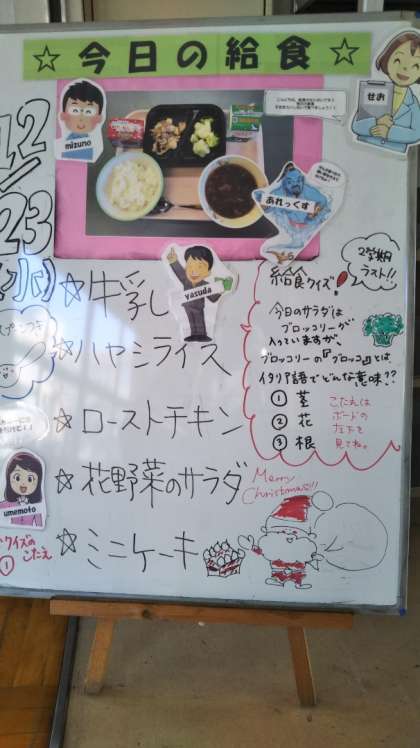 ☆今日の給食☆
せお
mizuno
12/23
(水)
あれっくす
yasuda
☆牛乳
☆ハヤシライス
☆ローストチキン
☆花野菜のサラダ
☆ミニケーキ
2学期
ラスト!!
給食クイズ!
今日のサラダは
ブロッコリーが
入っていますが、
ブロッコリーの『ブロッコ』とは、
イタリア語でどんな意味!?
① 茎
② 花
③ 根
こたえは
ボードの
左下を
見てね。
Merry
Christmas!!!
umemoto
クイズの
こたえ
①